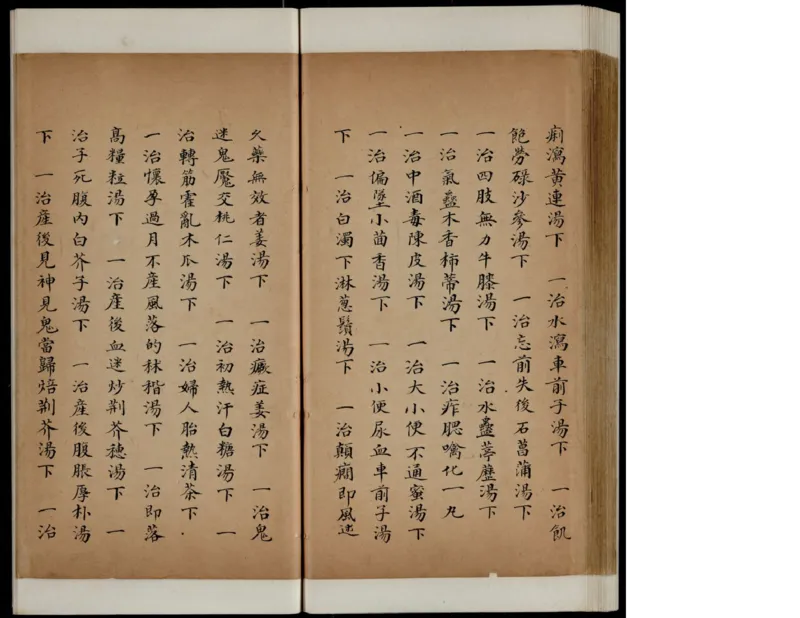 痢瀉黄連湯下　一治水瀉車前子湯下　一治飢
飽勞碌沙參湯下　一治忘前失後石菖蒲湯下
一治四肢無力牛膝湯下　一治水蠱葶藶湯下
一治氣蠱木香柿蒂湯下　一治痄腮噙化一丸
一治中酒毒陳皮湯下　一治大小便不通蜜湯下
一治偏墜小茴香湯下　一治小便尿血車前子湯
下　一治白濁下淋葱鬚湯下　一治顛癇即風迷
久藥無效者姜湯下　一治癥症姜湯下　一治鬼
迷鬼魘交桃仁湯下　一治初熱汗白糖湯下　一
治轉筋霍亂木瓜湯下　一治婦人胎熱清茶下
一治懷孕過月不產風落的秫稭湯下　一治即落
高糧粒湯下　一治產後血迷炒荆芥穗湯下　一
治子死腹內白芥子湯下　一治產後腹脹厚朴湯
下　一治產後見神見鬼當歸焙荆芥湯下　一治